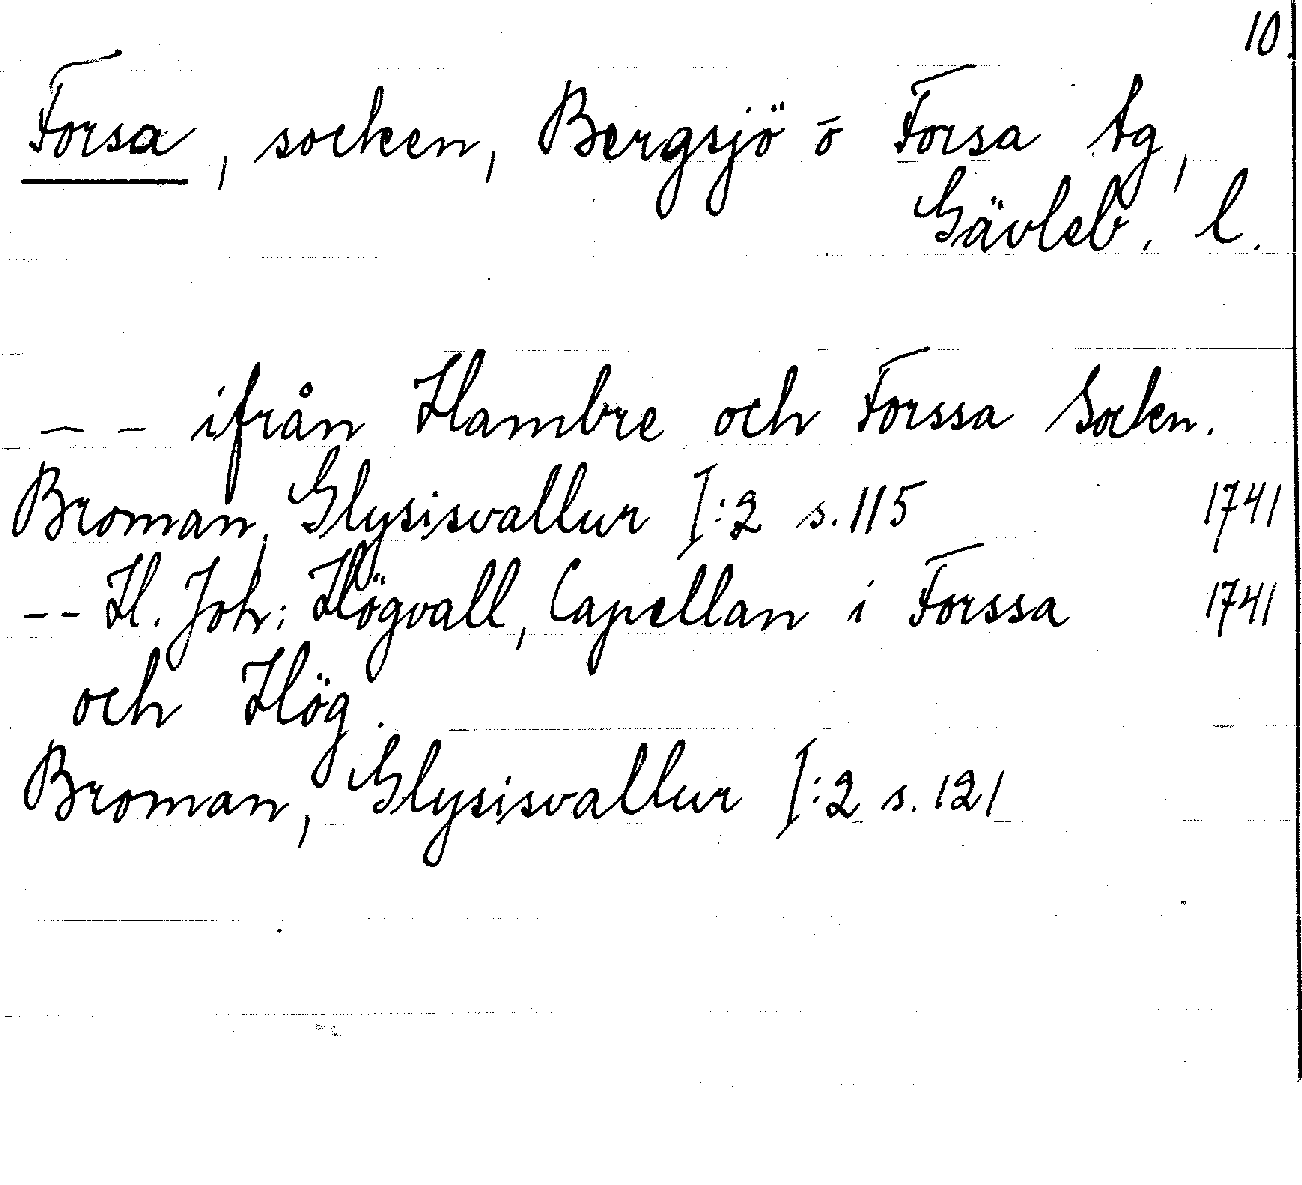 10.
Forsa, socken, Bergsjö o Forsa tg,
Gävleb. l.
-- ifrån Hambre och Forssa Socken.
Broman, Glysisvallur I:2 s.115 1741
-- H. Joh: Högvall, Capellan i Forssa 1741
och Hög.
Broman, Glysisvallur I:2 s.121